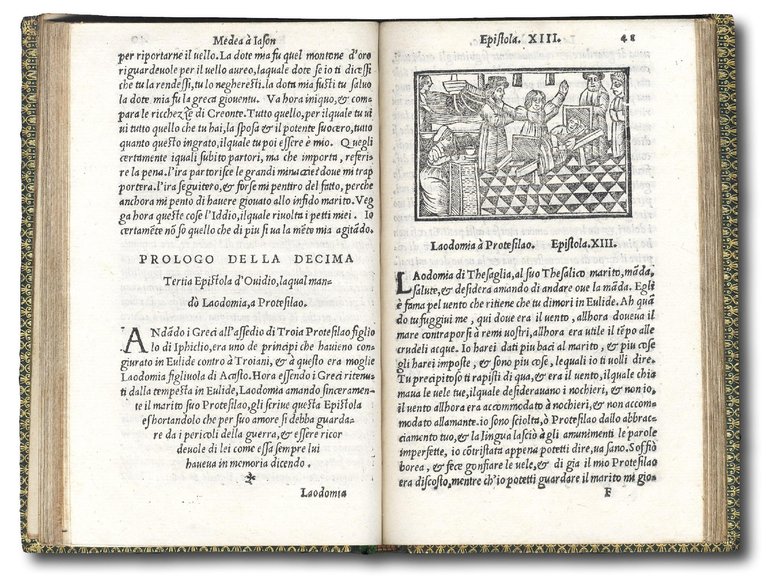 Medea à Iason
per riportarne il uello. La dote mia fu quel montone d'oro
riguardeuole per il uello aureo, laquale dote se io ti dicessi
che tu la rendessi, tu lo negheresti. la dota mia fusti tu saluo
la dote mia fu la greca giouentu. Va hora iniquo, & com
para le ricchezze di Creonte. Tutto quello, per ilquale tu ui
ui tutto quello che tu hai, la sposa & il potente suocero, tutto
quanto questo ingrato, ilquale tu poi essere è mio. Quegli
certamente iquali subito partori, ma che importa, referi-
re la pena. l'ira partorisce le grandi minaccie? doue mi trap
portera. l'ira seguitero, & forse mi pentiro del fatto, perche
anchora mi pento di hauere giouato allo infido marito. Veg
ga hora queste cose l'Iddio, ilquale riuolta i petti miei. Io
certamẽte nõ so quello che di piu si ua la mẽte mia agitãdo.
PROLOGO DELLA DECIMA
Tertia Epistola d'Ouidio, laqual man-
dò Laodomia, a Protesilao.
ANdãdo i Greci all'assedio di Troia Protesilao figliо
lo di Iphiclio, era uno de principi che hauieno con
giurato in Eulide contrò à Troiani, & à questo era moglie
Laodomia figliuola di Acasto. Hora essendo i Greci ritenu-
ti dalla tempesta in Eulide, Laodomia amando sinceramen-
te il marito suo Protesilao, gli scriue questa Epistola
eshortandolo che per suo amore si debba guarda-
re da i pericoli della guerra, & essere ricor
deuole di lei come essa sempre lui
haueua in memoria dicendo.
Laodomia
Epistola. XIII.
48
Laodomia à Protesilao. Epistola. XIII.
LAodomia di Thesaglia, al suo Thesalico marito, mãda,
salute, & desidera amando di andare oue la mãda. Egli
è fama pel uento che ritiene che tu dimori in Eulide. Ah quã
do tu fuggiui me, qui doue era il uento, allhora doueua il
mare contraporsi à remi uostri, allhora era utile il tẽpo alle
crudeli acque. Io harei dati piu baci al marito, & piu cose
gli harei imposte, & sono piu cose, le quali io ti uolli dire.
Tu precipitoso ti rapisti di qua, & era il uento, ilquale chia
maua le uele tue, ilquale desiderauano i nochieri, & non io,
il uento allhora era accommodato à nochieri, & non accom-
modato allamante. io sono sciolta, ò Protesilao dallo abbrac-
ciamento tuo, & la lingua lasciò à gli amunimenti le parole
imperfette, io cõtristata appena potetti dire, ua sano. Soffiò
borea, & fece gonfiare le uele, & di gia il mio Protesilao
era discosto, mentre ch'io potetti guardare il marito mi gio-
F